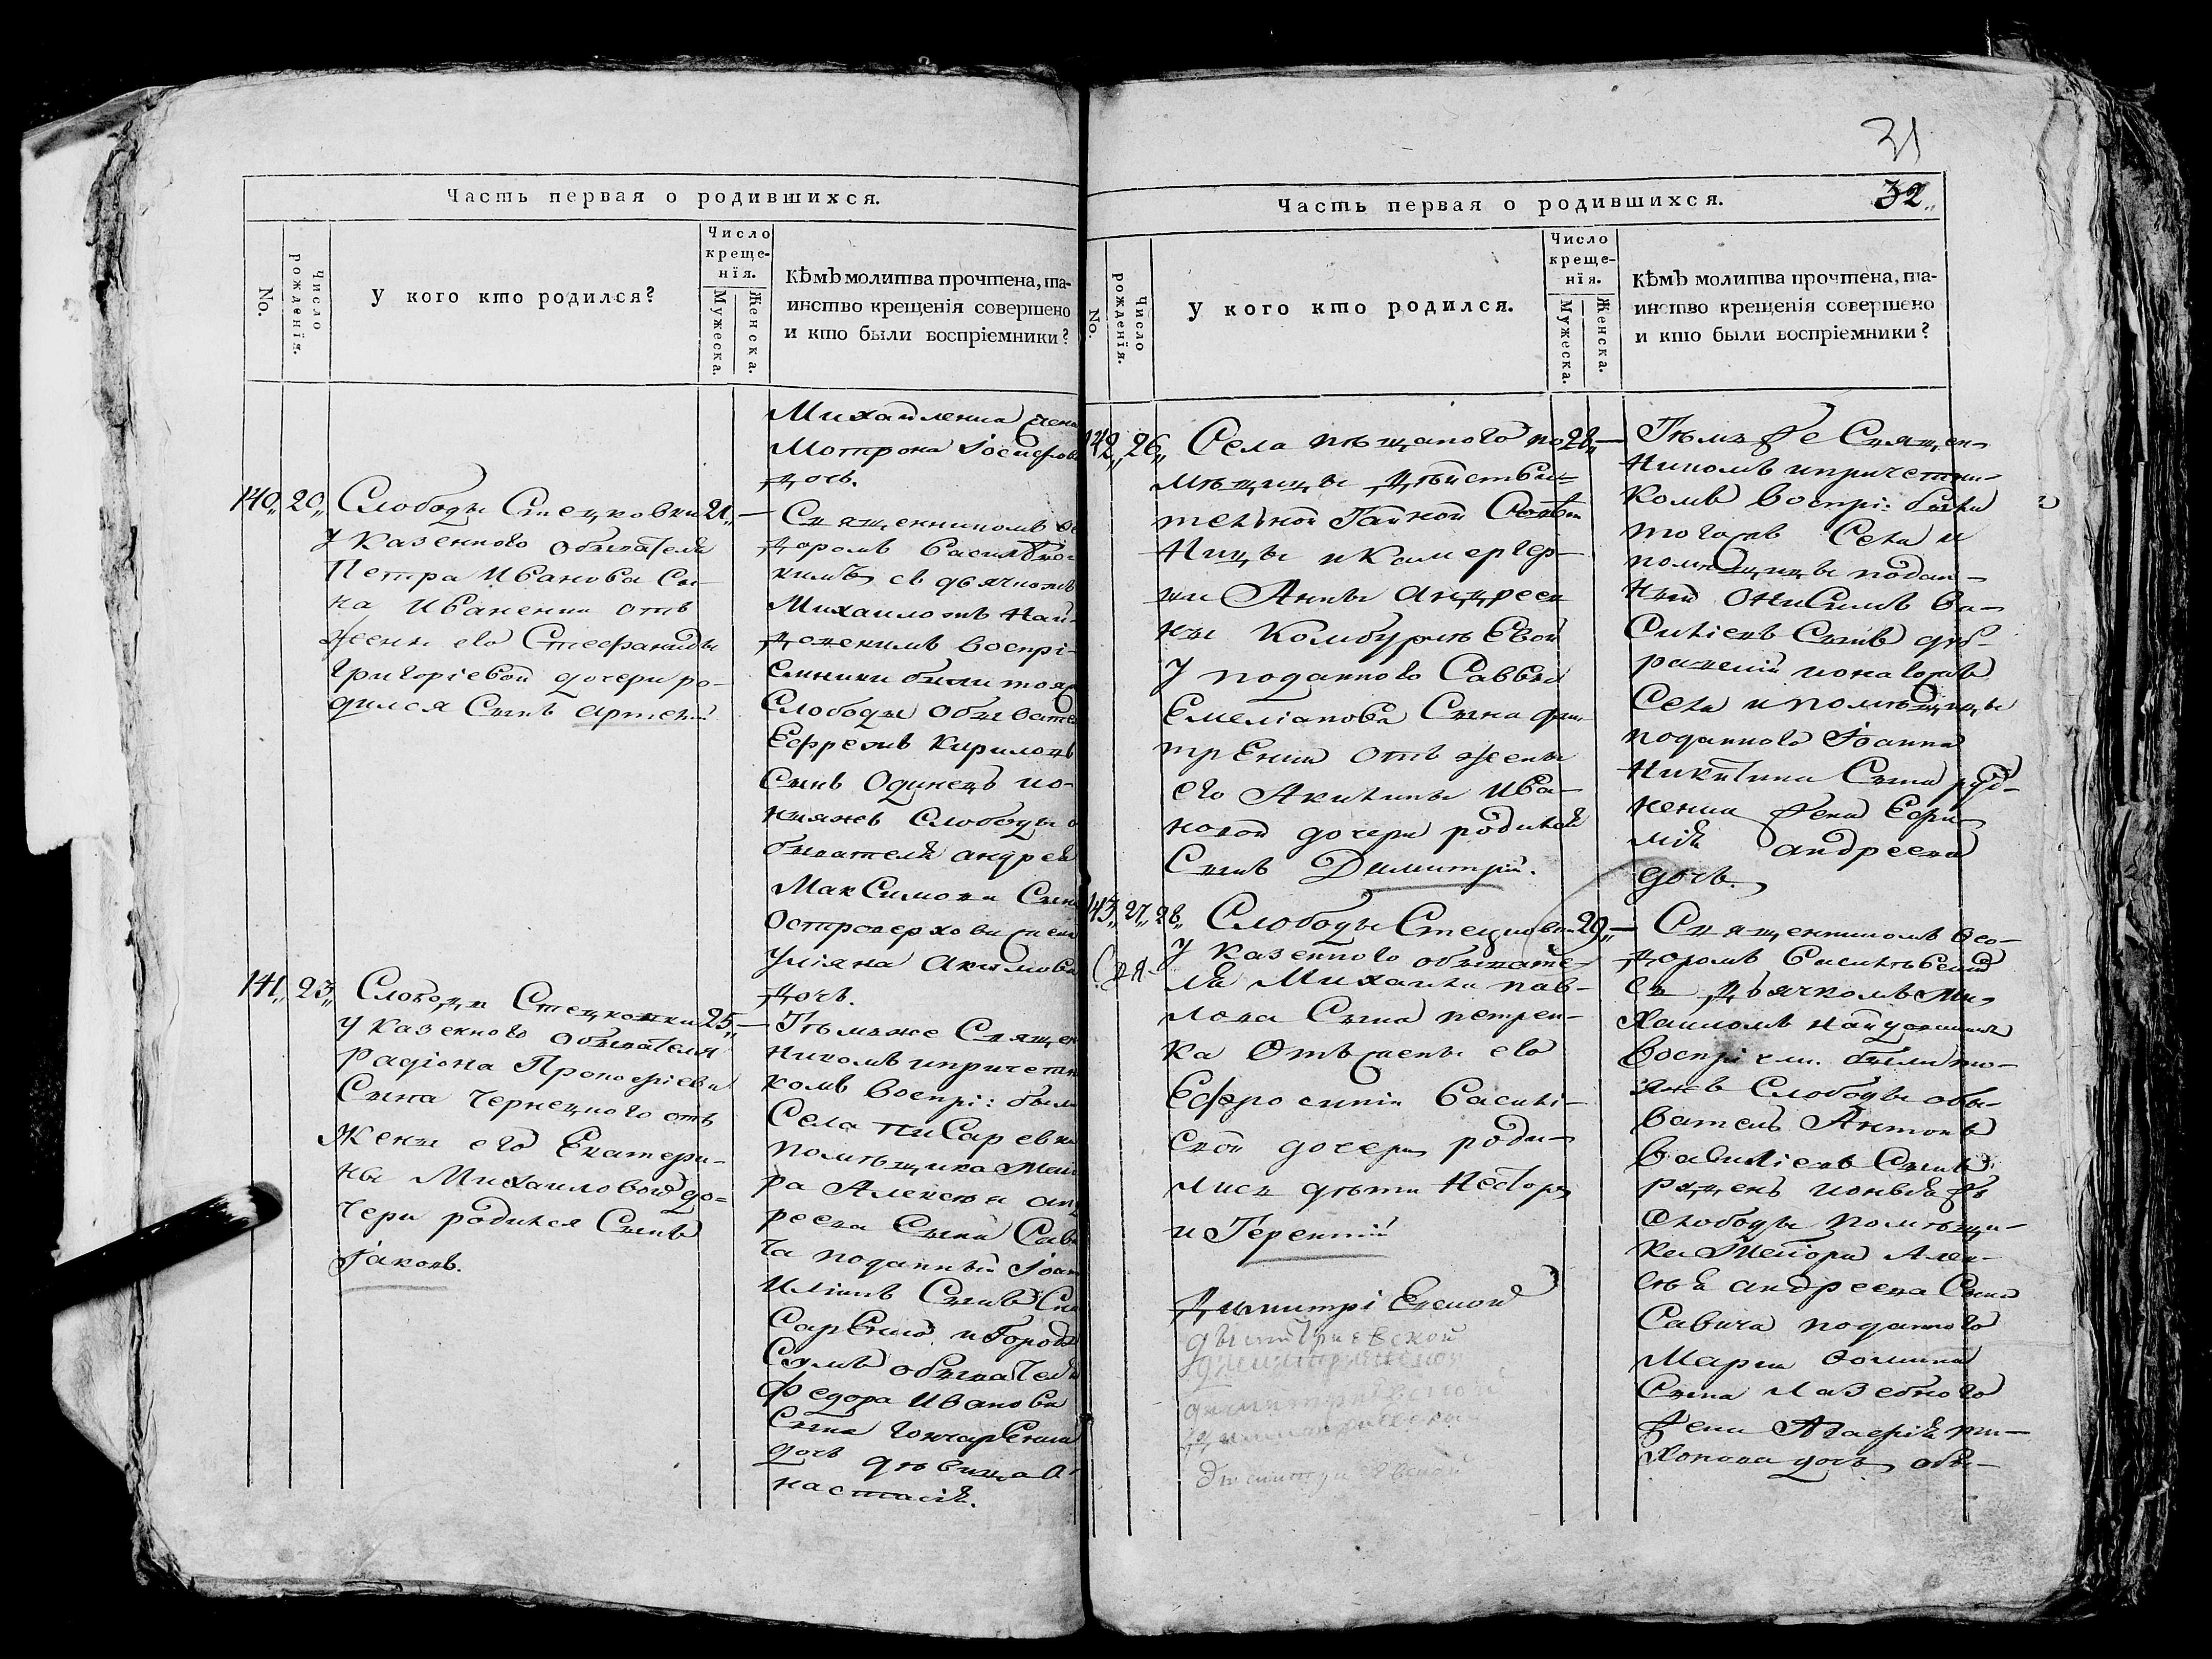 Часть первая о родившихся.
No.
Число рожденїя.
у кого кто родился?
Число креще-нїя.
Мужеска.
Женска.
кѢмЪ молитва прочтена, та-
инство крещенїя совершено
и кто были воспрїемники?
Михайленка жена
Мотрона Іосифова
дочь.
140,, 20,, Слободы Стецковки 21,, —
у казенного обывателя
Петра Иванова Сы-
на Иваненка отъ
жены его Стефаниды
Григоріевой дочери ро-
дился Сынъ Артемій
Священникомъ Ѳео
доромъ Васильков
кимъ съ дьячкомъ
Михаиломъ Най-
доненкимъ воспрі-
емники были тояж
Слободы обывате
Ефремъ Кириловъ
Сынъ Одинецъ ио-
ныяжъ Слободы о
бывателя андрея
Максимова Сына
Островерхова жена
Уліяна Акимова
дочь.
141,, 23,, Слободы Стецковки 25,, —
у казенного обывателя
Радіона Прокофіева
Сына Чернецкого отъ
жены его Екатери-
ны Михаиловой до-
чери родился Сынъ
Іаковъ.
Тѣмъже Священ
никомъ ипричетни
комъ воспрі: были
Села Писаревки
помѣщика Маио
ра Алексѣя анд
реева Сына Сави
ча поданный Іоан
Иліинъ Сынъ
и Города
Сумъ обывателя
Федора Иванова
Сына Гончаренка
дочь дѣвица А
настасія.
31
Часть первая о родившихся.
32,,
No.
Число рожденїя.
у кого кто родился.
Число креще-нїя.
Мужеска.
Женска.
кѢмЪ молитва прочтена, та-
инство крещенїя совершено
и кто были воспрїемники?
142,, 26,, Села пѣщаного по 28,, —
мѣщицы дѣйстви-
тельной Тайной Совѣт
ницы иКамергер-
ши Анны Андрее
ны Комбурлѣевой
у поданного Саввы
Емеліанова Сына дми
тренка отъ жены
его Акилины Ива-
новой дочери родился
Сынъ Димитрій.
Тѣмъ же Священ-
никомъ ипричетни-
комъ воспрі: были
тогожъ Села и
помѣщицы подан-
ный Онисимъ Ва-
силіевъ Сынъ
ионагожъ
Села и помѣщицы
поданного Іоанна
Никитина Сына руд-
ненка жена Ефи
мія андреева
дочь.
143,, 27,, 28,, Слободы Стецковки 29,, —
у казенного обывате-
ля Михаила пав-
лова Сына петрен-
ка отъ жены его
Ефросиніи Василі-
евой дочери роди-
лись дѣти Несторъ
и Терентій
Священникомъ Ѳео-
доромъ Васильевскимъ
съ дьячкомъ Ми-
хаиломъ Найдонкимъ
воспріем. были то-
яжъ Слободы обы-
ватель Антонъ
Василіевъ Сынъ
ионыяжъ
Слободы помѣщи-
ка Маіора Алек-
сѣя андреева Сына
Савича поданного
Марка Ѳомина
Сына Лазебного
жена Агафія ти-
хонова дочь обы-
Димитріевской
дымитріевской
димитріевской
димитріевской
димитріевской
димитріевской